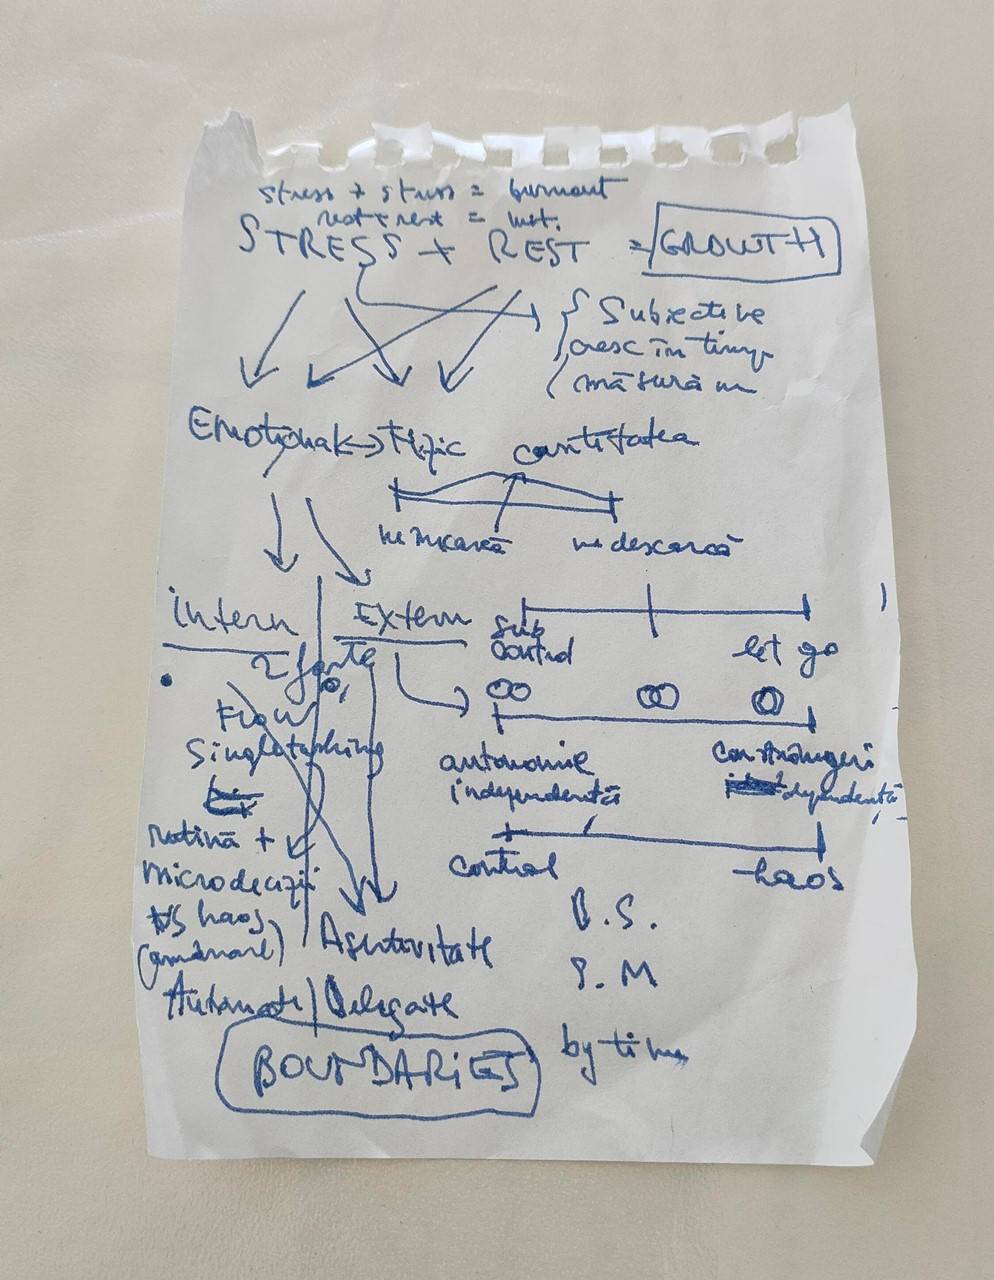 stress + stress = burnout
rest + rest =
STRESS + REST = GROWTH
Subiective
cresc în timp
măsură
Emoțional ↔ Fizic
cantitatea
ne încarcă
ne descarcă
intern
Extern
sub
control
let go
2
Flow
Singletasking
autonomie
independentă
constrângeri
dependentă
rutină +
microdecizii
vs haos
(amânare)
control
haos
Asertivitate
B.S.
P.M
Automate / Delegate
by time
BOUNDARIES